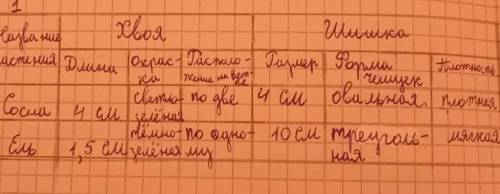 1
Название растения Хвоя Шишка
Длина Окраска Расположение на ветке Размер Форма чешуек Плотность
Сосна 4 см светло-зелёная по две 4 см овальная плотная
Ель 1,5 см тёмно-зелёная по одному 10 см треугольная мягкая